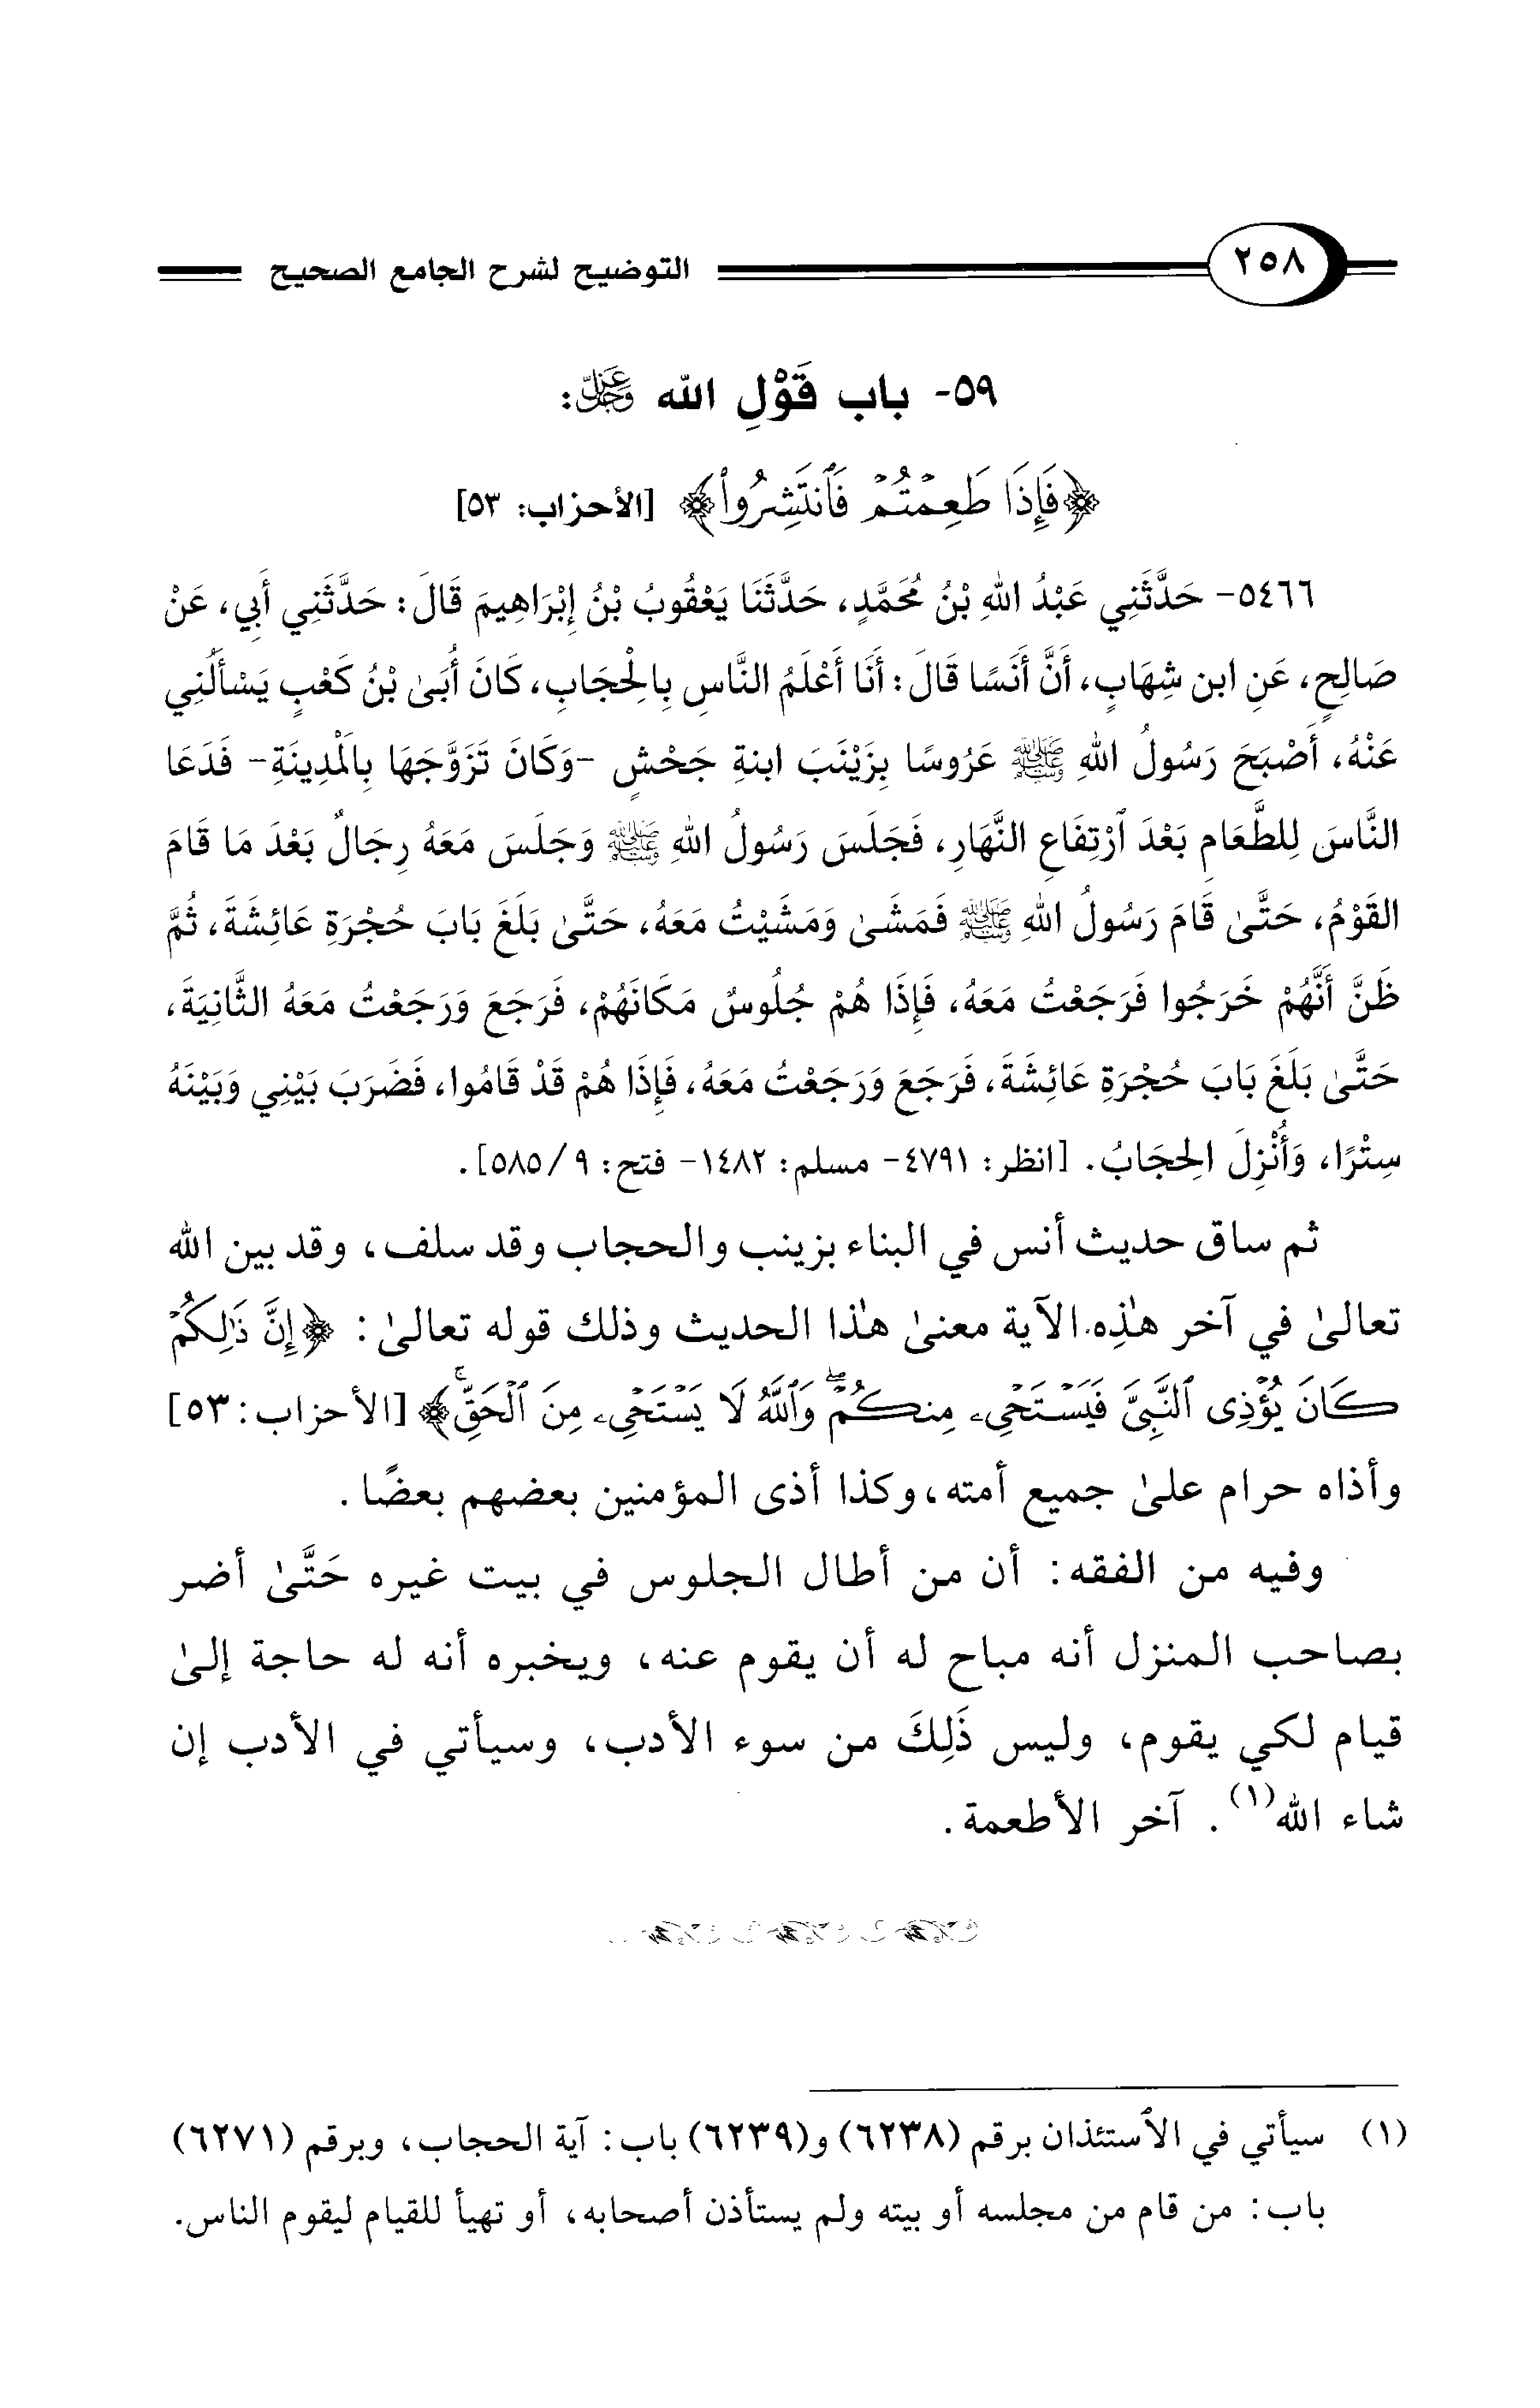 ٢٥٨ التوضيح لشرح الجامع الصحيح
٥٩- باب قَوْلِ الله عَزَّ وَجَلَّ:
﴿فَإِذَا طَعِمْتُمْ فَٱنتَشِرُوا۟﴾ [الأحزاب: ٥٣]
٥٤٦٦- حَدَّثَنِي عَبْدُ اللهِ بْنُ مُحَمَّدٍ، حَدَّثَنَا يَعْقُوبُ بْنُ إِبْرَاهِيمَ قَالَ: حَدَّثَنِي أَبِي، عَنْ
صَالِحٍ، عَنِ ابن شِهَابٍ، أَنَّ أَنَسًا قَالَ: أَنَا أَعْلَمُ النَّاسِ بِالْحِجَابِ، كَانَ أُبَىٰ بْنُ كَعْبٍ يَسْأَلُنِي
عَنْهُ، أَصْبَحَ رَسُولُ اللهِ ﷺ عَرُوسًا بِزَيْنَبَ ابنةِ جَحْشٍ -وَكَانَ تَزَوَّجَهَا بِالْمَدِينَةِ- فَدَعَا
النَّاسَ لِلطَّعَامِ بَعْدَ ٱرْتِفَاعِ النَّهَارِ، فَجَلَسَ رَسُولُ اللهِ ﷺ وَجَلَسَ مَعَهُ رِجَالٌ بَعْدَ مَا قَامَ
القَوْمُ، حَتَّىٰ قَامَ رَسُولُ اللهِ ﷺ فَمَشَىٰ وَمَشَيْتُ مَعَهُ، حَتَّىٰ بَلَغَ بَابَ حُجْرَةِ عَائِشَةَ، ثُمَّ
ظَنَّ أَنَّهُمْ خَرَجُوا فَرَجَعْتُ مَعَهُ، فَإِذَا هُمْ جُلُوسٌ مَكَانَهُمْ، فَرَجَعَ وَرَجَعْتُ مَعَهُ الثَّانِيَةَ،
حَتَّىٰ بَلَغَ بَابَ حُجْرَةِ عَائِشَةَ، فَرَجَعَ وَرَجَعْتُ مَعَهُ، فَإِذَا هُمْ قَدْ قَامُوا، فَضَرَبَ بَيْنِي وَبَيْنَهُ
سِتْرًا، وَأُنْزِلَ الحِجَابُ. [انظر: ٤٧٩١- مسلم: ١٤٨٢- فتح: ٩/ ٥٨٥].
ثم ساق حديث أنس في البناء بزينب والحجاب وقد سلف، وقد بين الله
تعالىٰ في آخر هٰذِه الآية معنىٰ هٰذا الحديث وذلك قوله تعالىٰ: ﴿إِنَّ ذَٰلِكُمْ
كَانَ يُؤْذِى ٱلنَّبِىَّ فَيَسْتَحْىِۦ مِنكُمْ ۖ وَٱللَّهُ لَا يَسْتَحْىِۦ مِنَ ٱلْحَقِّ ۚ﴾ [الأحزاب: ٥٣]
وأذاه حرام علىٰ جميع أمته، وكذا أذى المؤمنين بعضهم بعضًا.
وفيه من الفقه: أن من أطال الجلوس في بيت غيره حَتَّىٰ أضر
بصاحب المنزل أنه مباح له أن يقوم عنه، ويخبره أنه له حاجة إلىٰ
قيام لكي يقوم، وليس ذَلِكَ من سوء الأدب، وسيأتي في الأدب إن
شاء الله(١). آخر الأطعمة.
(١) سيأتي في الٱستئذان برقم (٦٢٣٨) و(٦٢٣٩) باب: آية الحجاب، وبرقم (٦٢٧١)
باب: من قام من مجلسه أو بيته ولم يستأذن أصحابه، أو تهيأ للقيام ليقوم الناس.